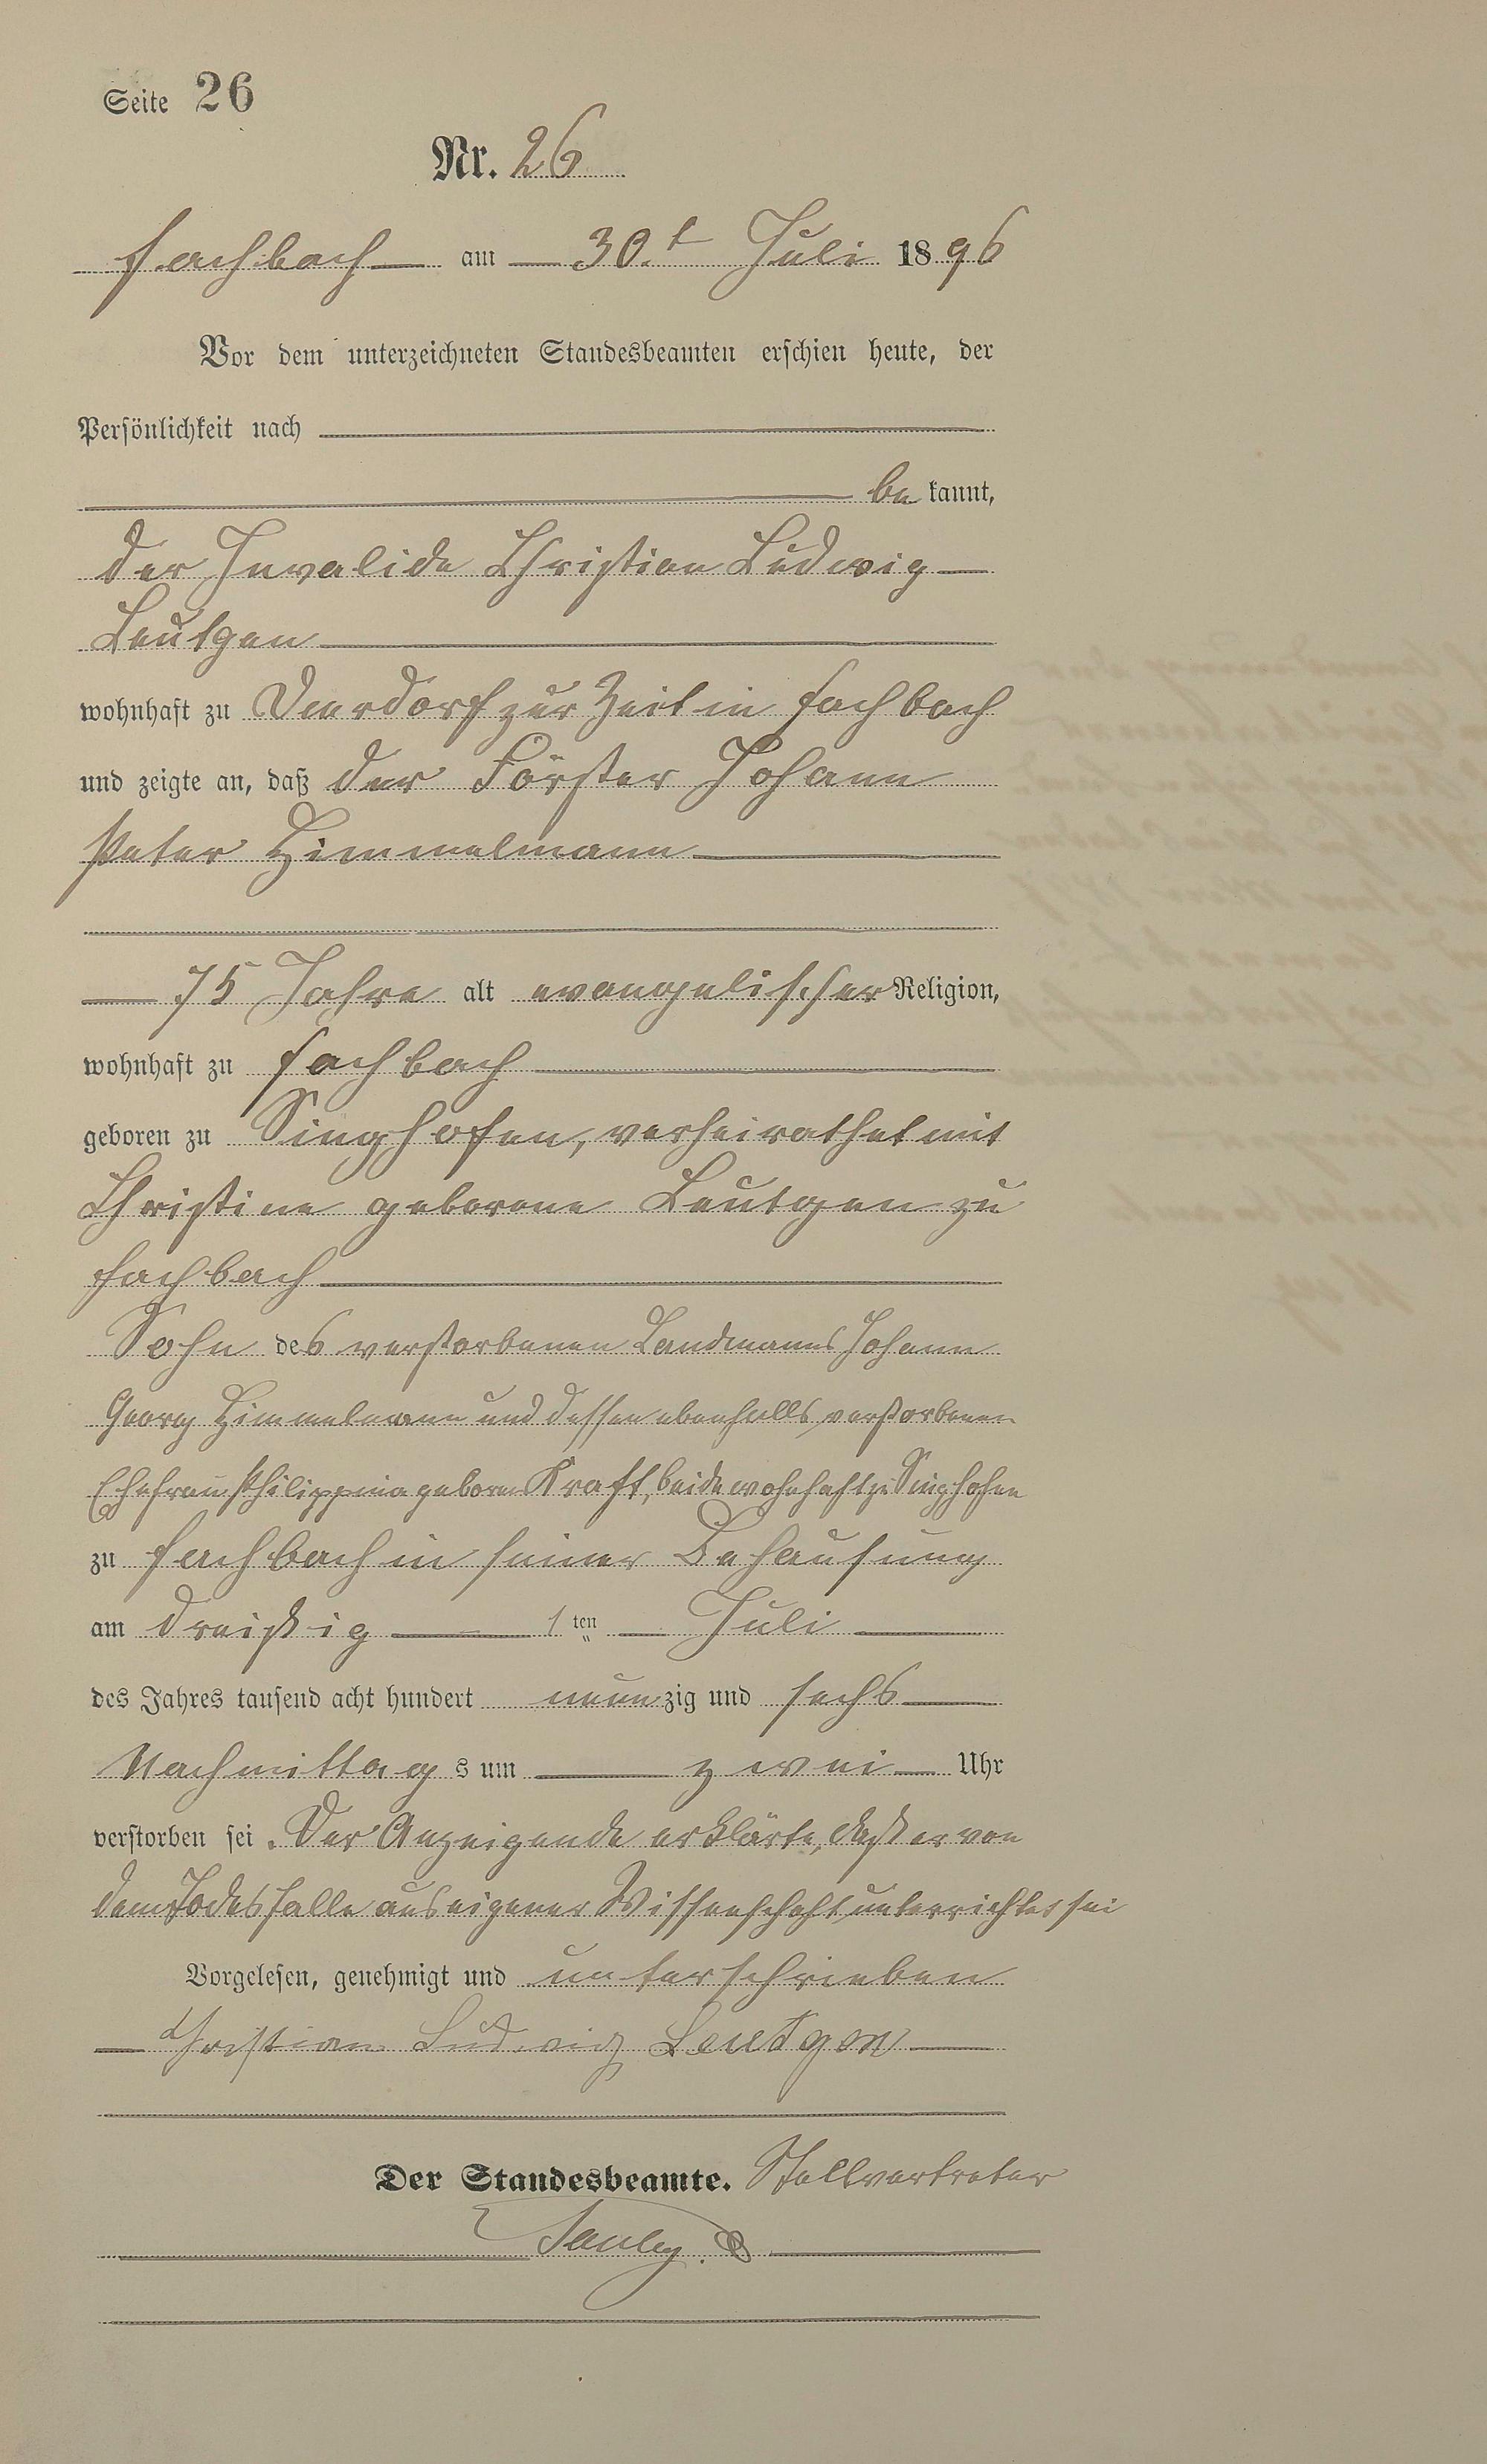 Seite 26
Nr. 26
Fachbach am 30.t Juli 1896
Vor dem unterzeichneten Standesbeamten erschien heute, der
Persönlichkeit nach
be kannt,
der Invalide Christian Ludwig
Leutgen
wohnhaft zu Dierdorf zur Zeit in Fachbach
und zeigte an, daß der Förster Johann
Peter Himmelmann
75 Jahre alt evangelischer Religion,
wohnhaft zu Fachbach
geboren zu Singhofen, verheirathet mit
Christine geborene Leutgen zu
Fachbach
Sohn des verstorbenen Landmanns Johann
Georg Himmelmann und dessen ebenfalls verstorbenen
Ehefrau Philippina geboren Kraft, beide wohnhaft zu Singhofen
zu Fachbach in seiner Behausung
am dreißig 1 ten Juli
des Jahres tausend acht hundert neunzig und sechs
Nachmittag s um zwei Uhr
verstorben sei. Der Anzeigende erklärte, daß er von
dem Todesfalle aus eigener Wissenschaft unterrichtet sei
Vorgelesen, genehmigt und unterschrieben
Christian Ludwig Leutgen
Der Standesbeamte. Stellvertreter